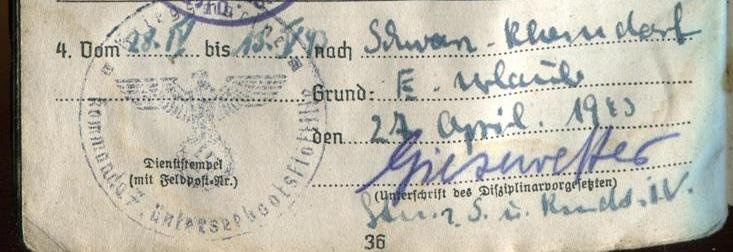 4. Vom 28.IV bis 15.V 43 nach Schwarz-Rheindorf
Grund: E. Urlaub
den 27 April. 1943
Dienststempel
(mit Feldpost-Nr.)
Kommando 7. Unterseebootsflottille
(Unterschrift des Disziplinarvorgesetzten)
z. S. u. i.V.
36